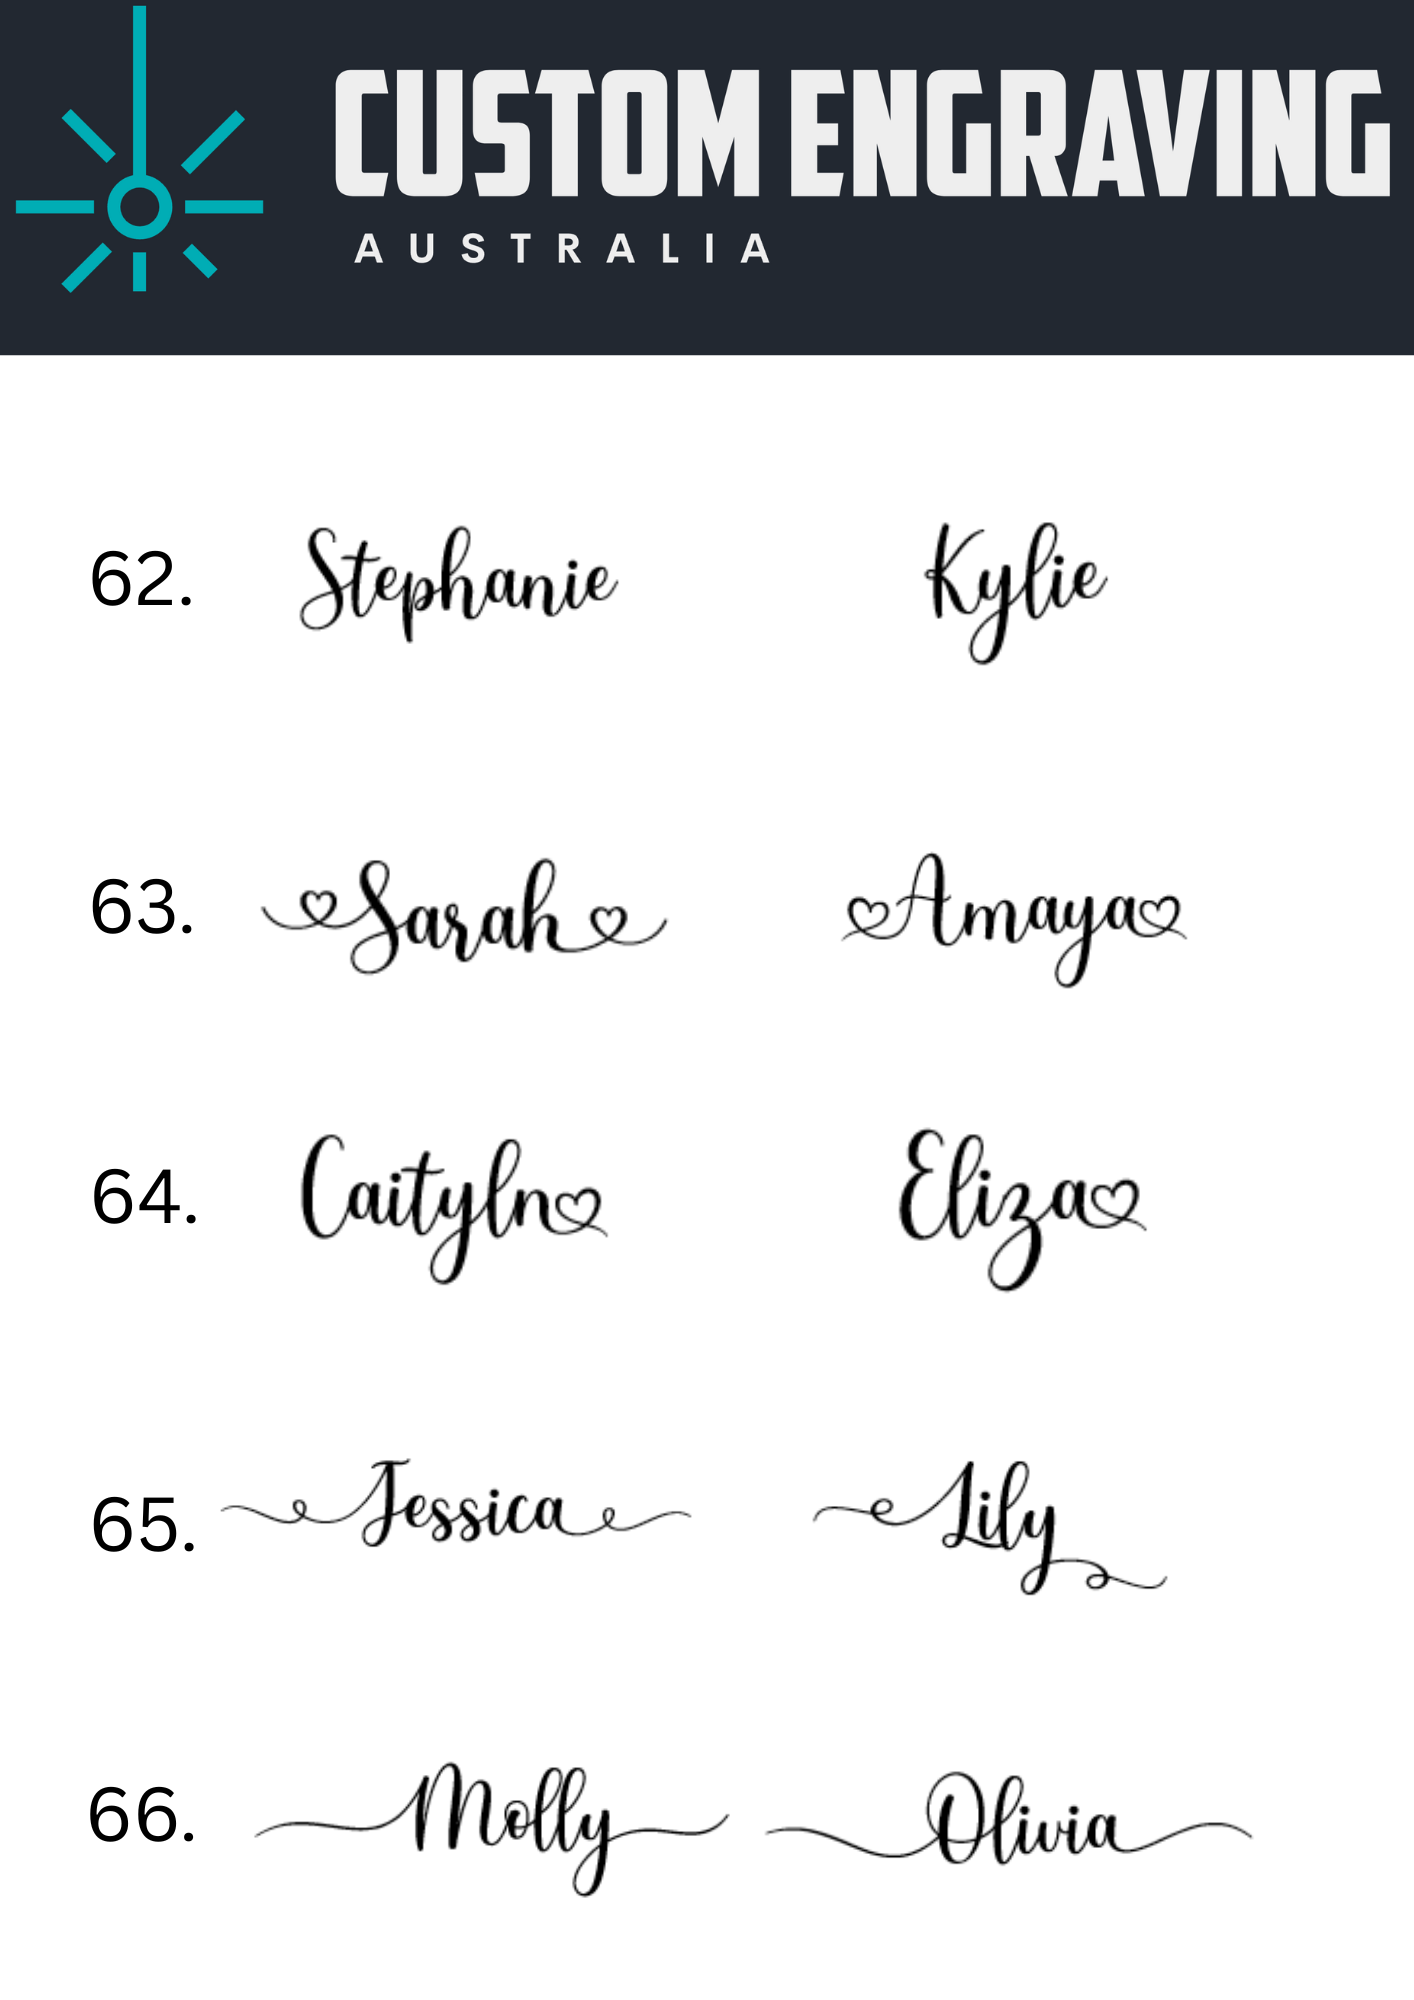 CUSTOM ENGRAVING
AUSTRALIA
62. Stephanie Kylie
63. Sarah Amaya
64. Caityln Eliza
65. Jessica Lily
66. Molly Olivia